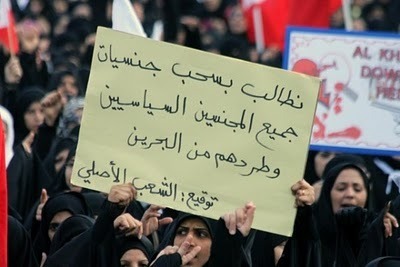 نطالب بسحب جنسيات
جميع المجنسين السياسيين
وطردهم من البحرين
توقيع: الشعب الأصلي
AL KH
DOW
HE